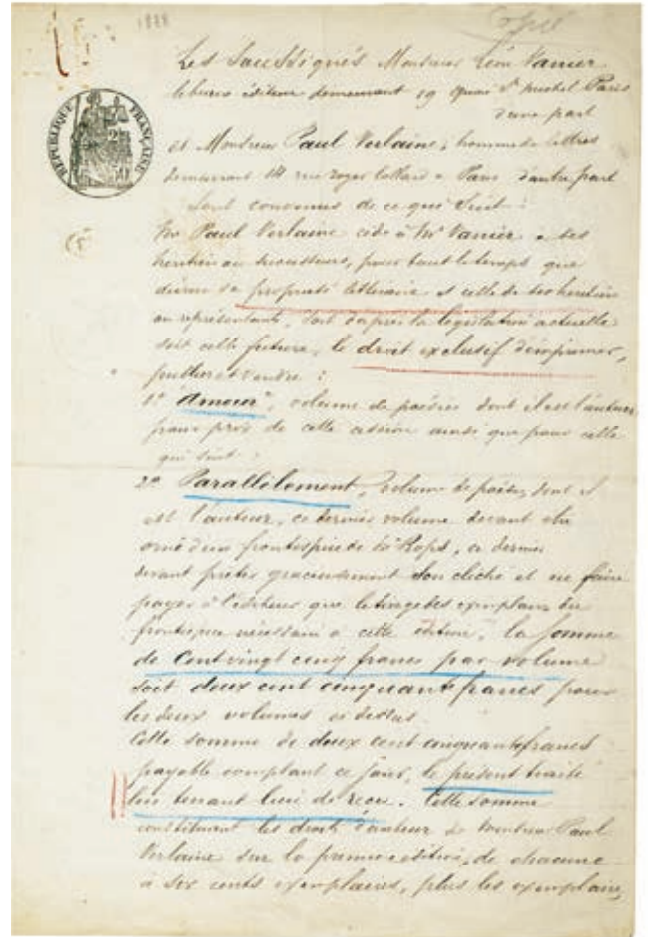 1888
Copie
Les Soussignés Monsieur Léon Vanier
libraire éditeur demeurant 19 Quai St Michel Paris
d'une part
et Monsieur Paul Verlaine, homme de lettres
demeurant 14 rue Royer Collard à Paris d'autre part
sont convenus de ce qui suit :
Mr Paul Verlaine cède à Mr Vanier à ses
héritiers ou successeurs, pour tout le temps que
durera sa propriété littéraire et celle de ses héritiers
ou représentants, soit d'après la législation actuelle
soit celle future, le droit exclusif d'imprimer,
publier et vendre :
1º "Amour", volume de poésies dont il est l'auteur
pour prix de cette cession ainsi que pour celle
qui suit :
2º Parallèlement, volume de poésies, dont il
est l'auteur, ce dernier volume devant être
orné d'un frontispice de Mr Rops, ce dernier
devant prêter gracieusement son cliché et ne faire
payer à l'éditeur que le tirage des exemplaires du
frontispice nécessaire à cette édition, la somme
de Cent vingt cinq francs par volume
soit deux cent cinquante francs pour
les deux volumes ci dessus.
Cette somme de deux cent cinquante francs
payable comptant ce jour, le présent traité
lui tenant lieu de reçu. Cette somme
constituant les droits d'auteur de Monsieur Paul
Verlaine sur la première édition, de chacune
à six cents exemplaires, plus les exemplaires
RÉPUBLIQUE FRANÇAISE